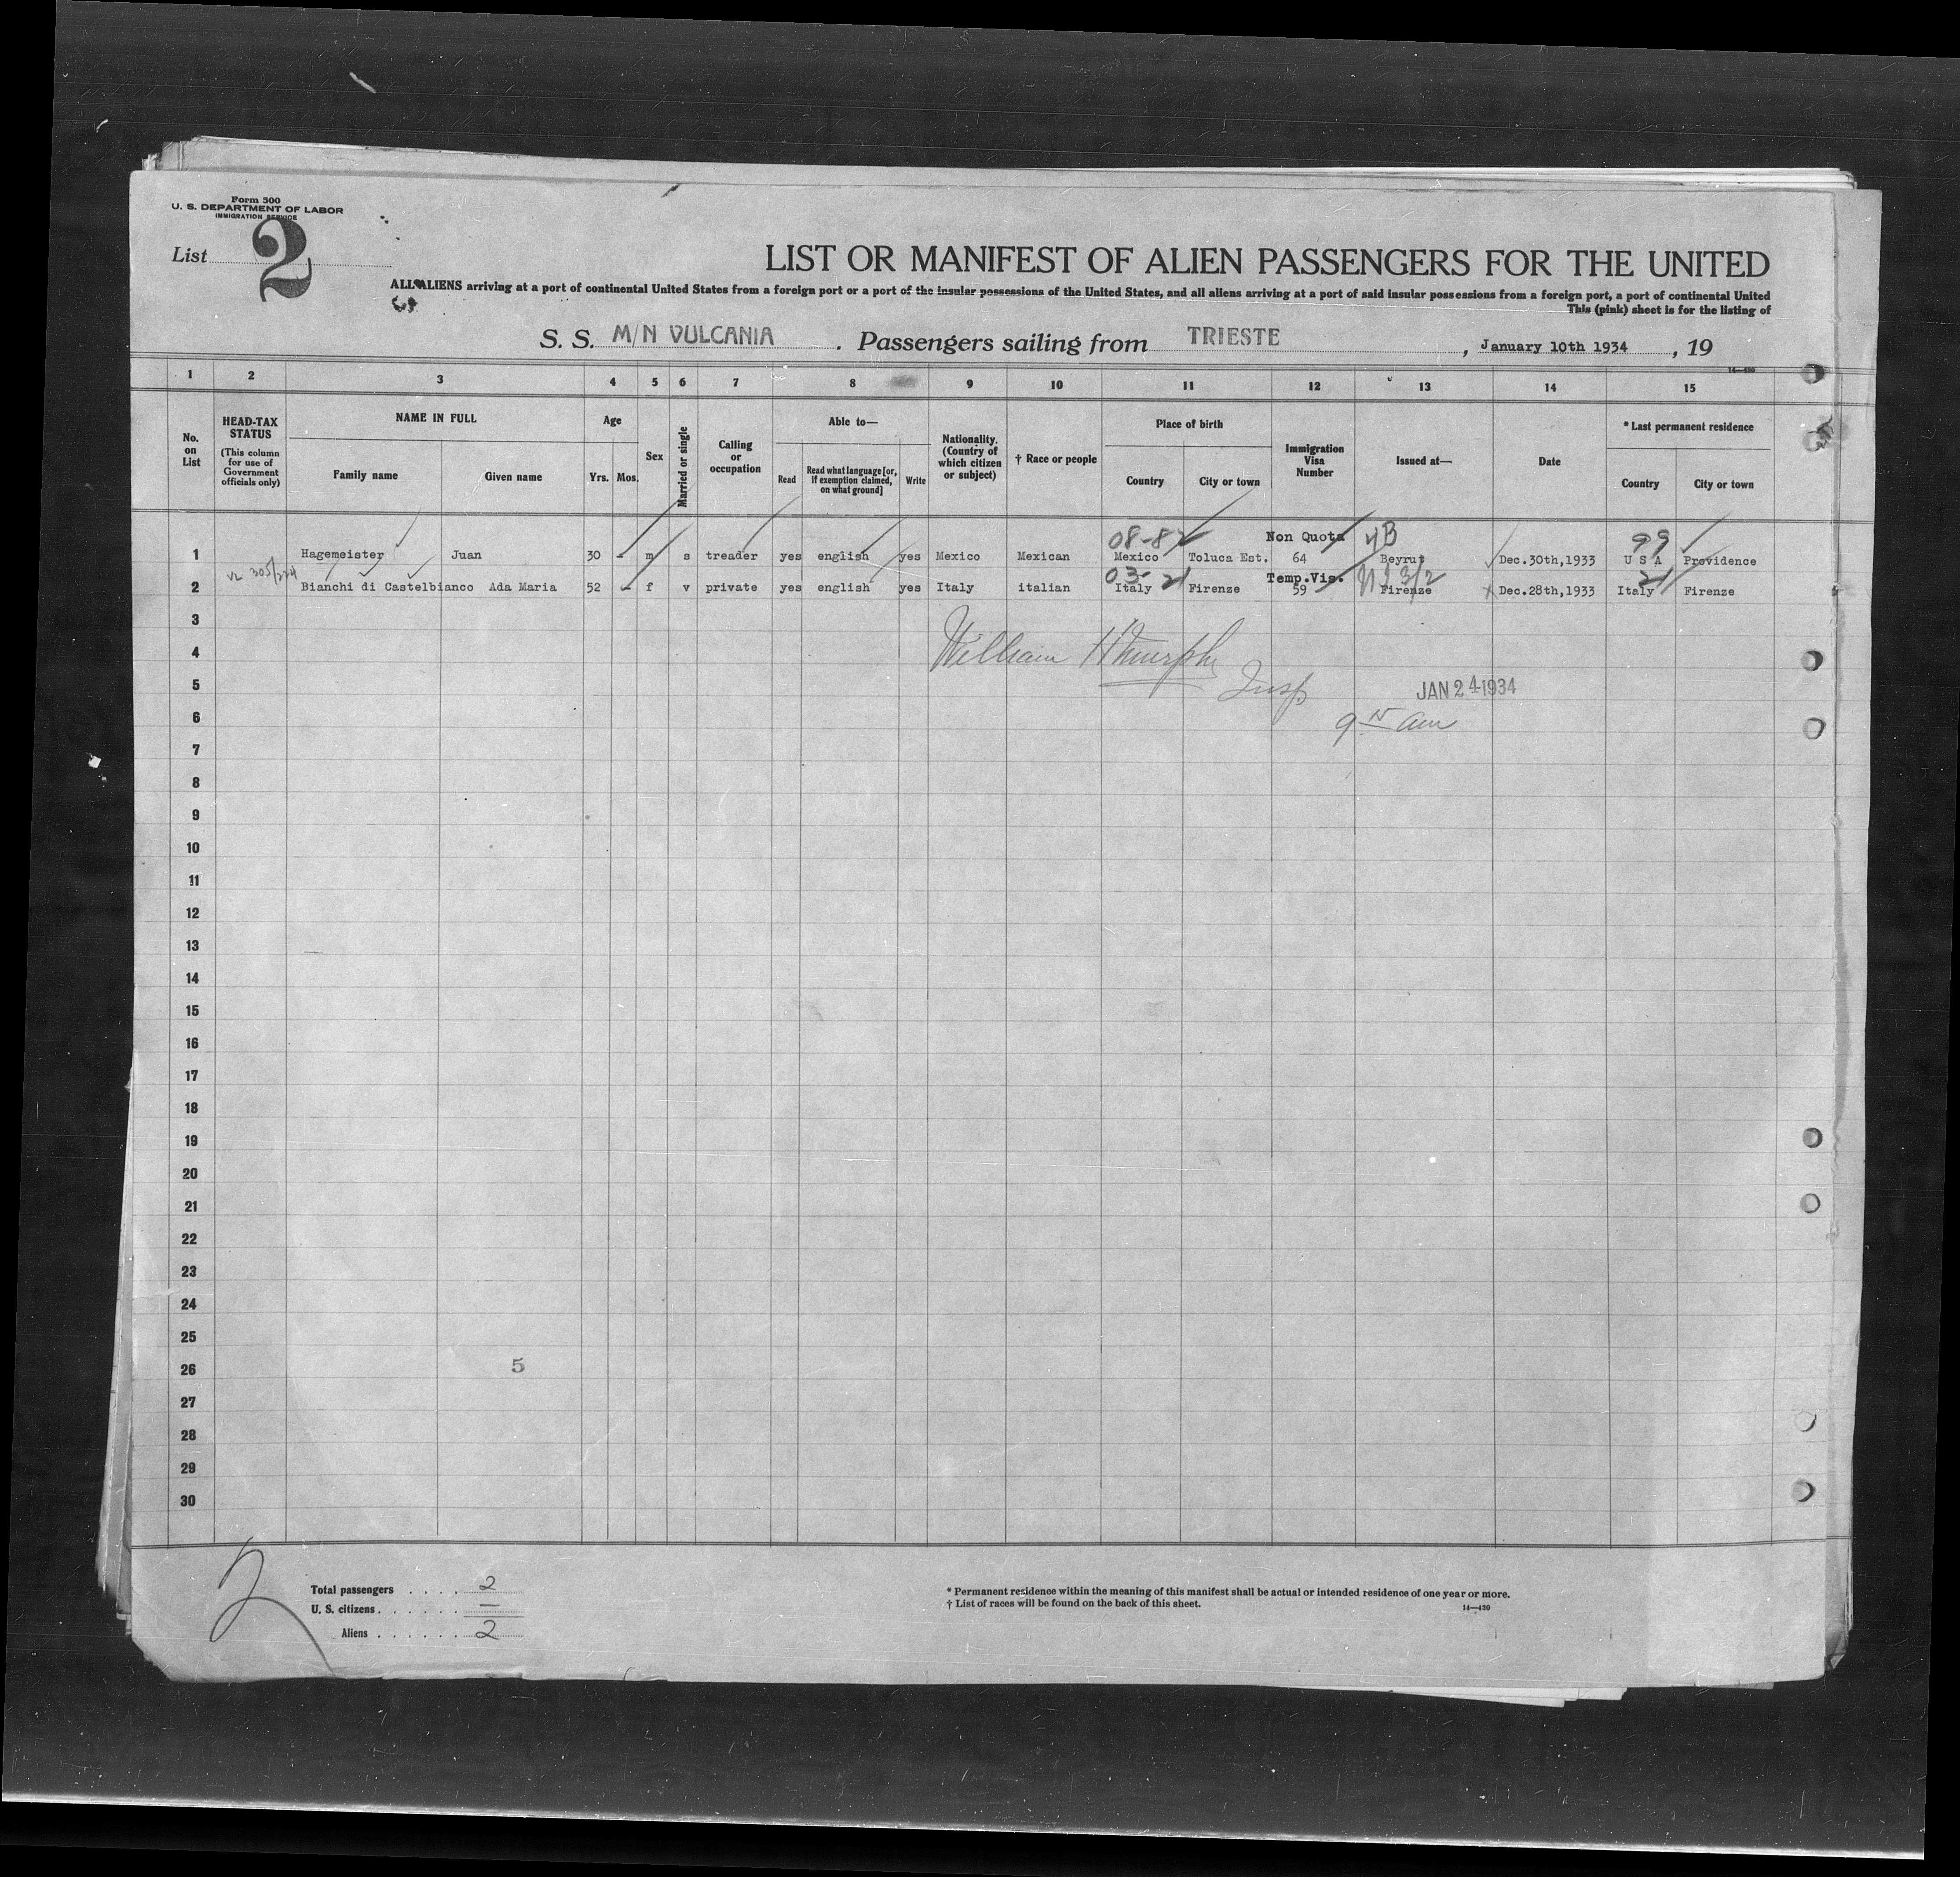 Form 500
U. S. DEPARTMENT OF LABOR
IMMIGRATION SERVICE
List 2
LIST OR MANIFEST OF ALIEN PASSENGERS FOR THE UNITED
ALL ALIENS arriving at a port of continental United States from a foreign port or a port of the insular possessions of the United States, and all aliens arriving at a port of said insular possessions from a foreign port, a port of continental United
This (pink) sheet is for the listing of
S. S. M/N VULCANIA . Passengers sailing from TRIESTE , January 10th 1934 , 19
14—430
1 2 3 4 5 6 7 8 9 10 11 12 13 14 15
No. on List
HEAD-TAX STATUS (This column for use of Government officials only)
NAME IN FULL
Family name Given name
Age
Yrs. Mos.
Sex
Married or single
Calling or occupation
Able to—
Read Read what language [or, if exemption claimed, on what ground] Write
Nationality. (Country of which citizen or subject)
† Race or people
Place of birth
Country City or town
Immigration Visa Number
Issued at—
Date
* Last permanent residence
Country City or town
08-82 Non Quota 4B 99
1 Hagemeister Juan 30 - m s treader yes english yes Mexico Mexican Mexico Toluca Est. 64 Beyrut Dec.30th,1933 U S A Providence
03- 21 Temp.Vis. 3/2 21
2 Bianchi di Castelbianco Ada Maria 52 - f v private yes english yes Italy italian Italy Firenze 59 Firenze Dec.28th,1933 Italy Firenze
3
4 William H Murphy
5 Insp JAN 24 1934
6 9 15 am
7
8
9
10
11
12
13
14
15
16
17
18
19
20
21
22
23
24
25
26 5
27
28
29
30
2
Total passengers . . . . 2
U. S. citizens . . . . . . —
Aliens . . . . . . 2
* Permanent residence within the meaning of this manifest shall be actual or intended residence of one year or more.
† List of races will be found on the back of this sheet.
14—430